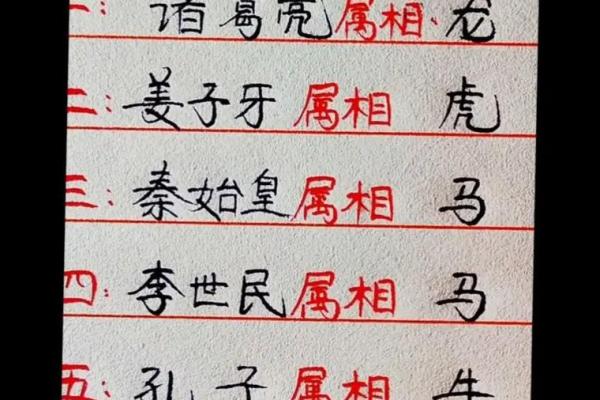 一：诸葛亮属相、龙
二：姜子牙属相 虎
三：秦始皇属相 马
四：李世民属相 马
五：孔子属相 牛